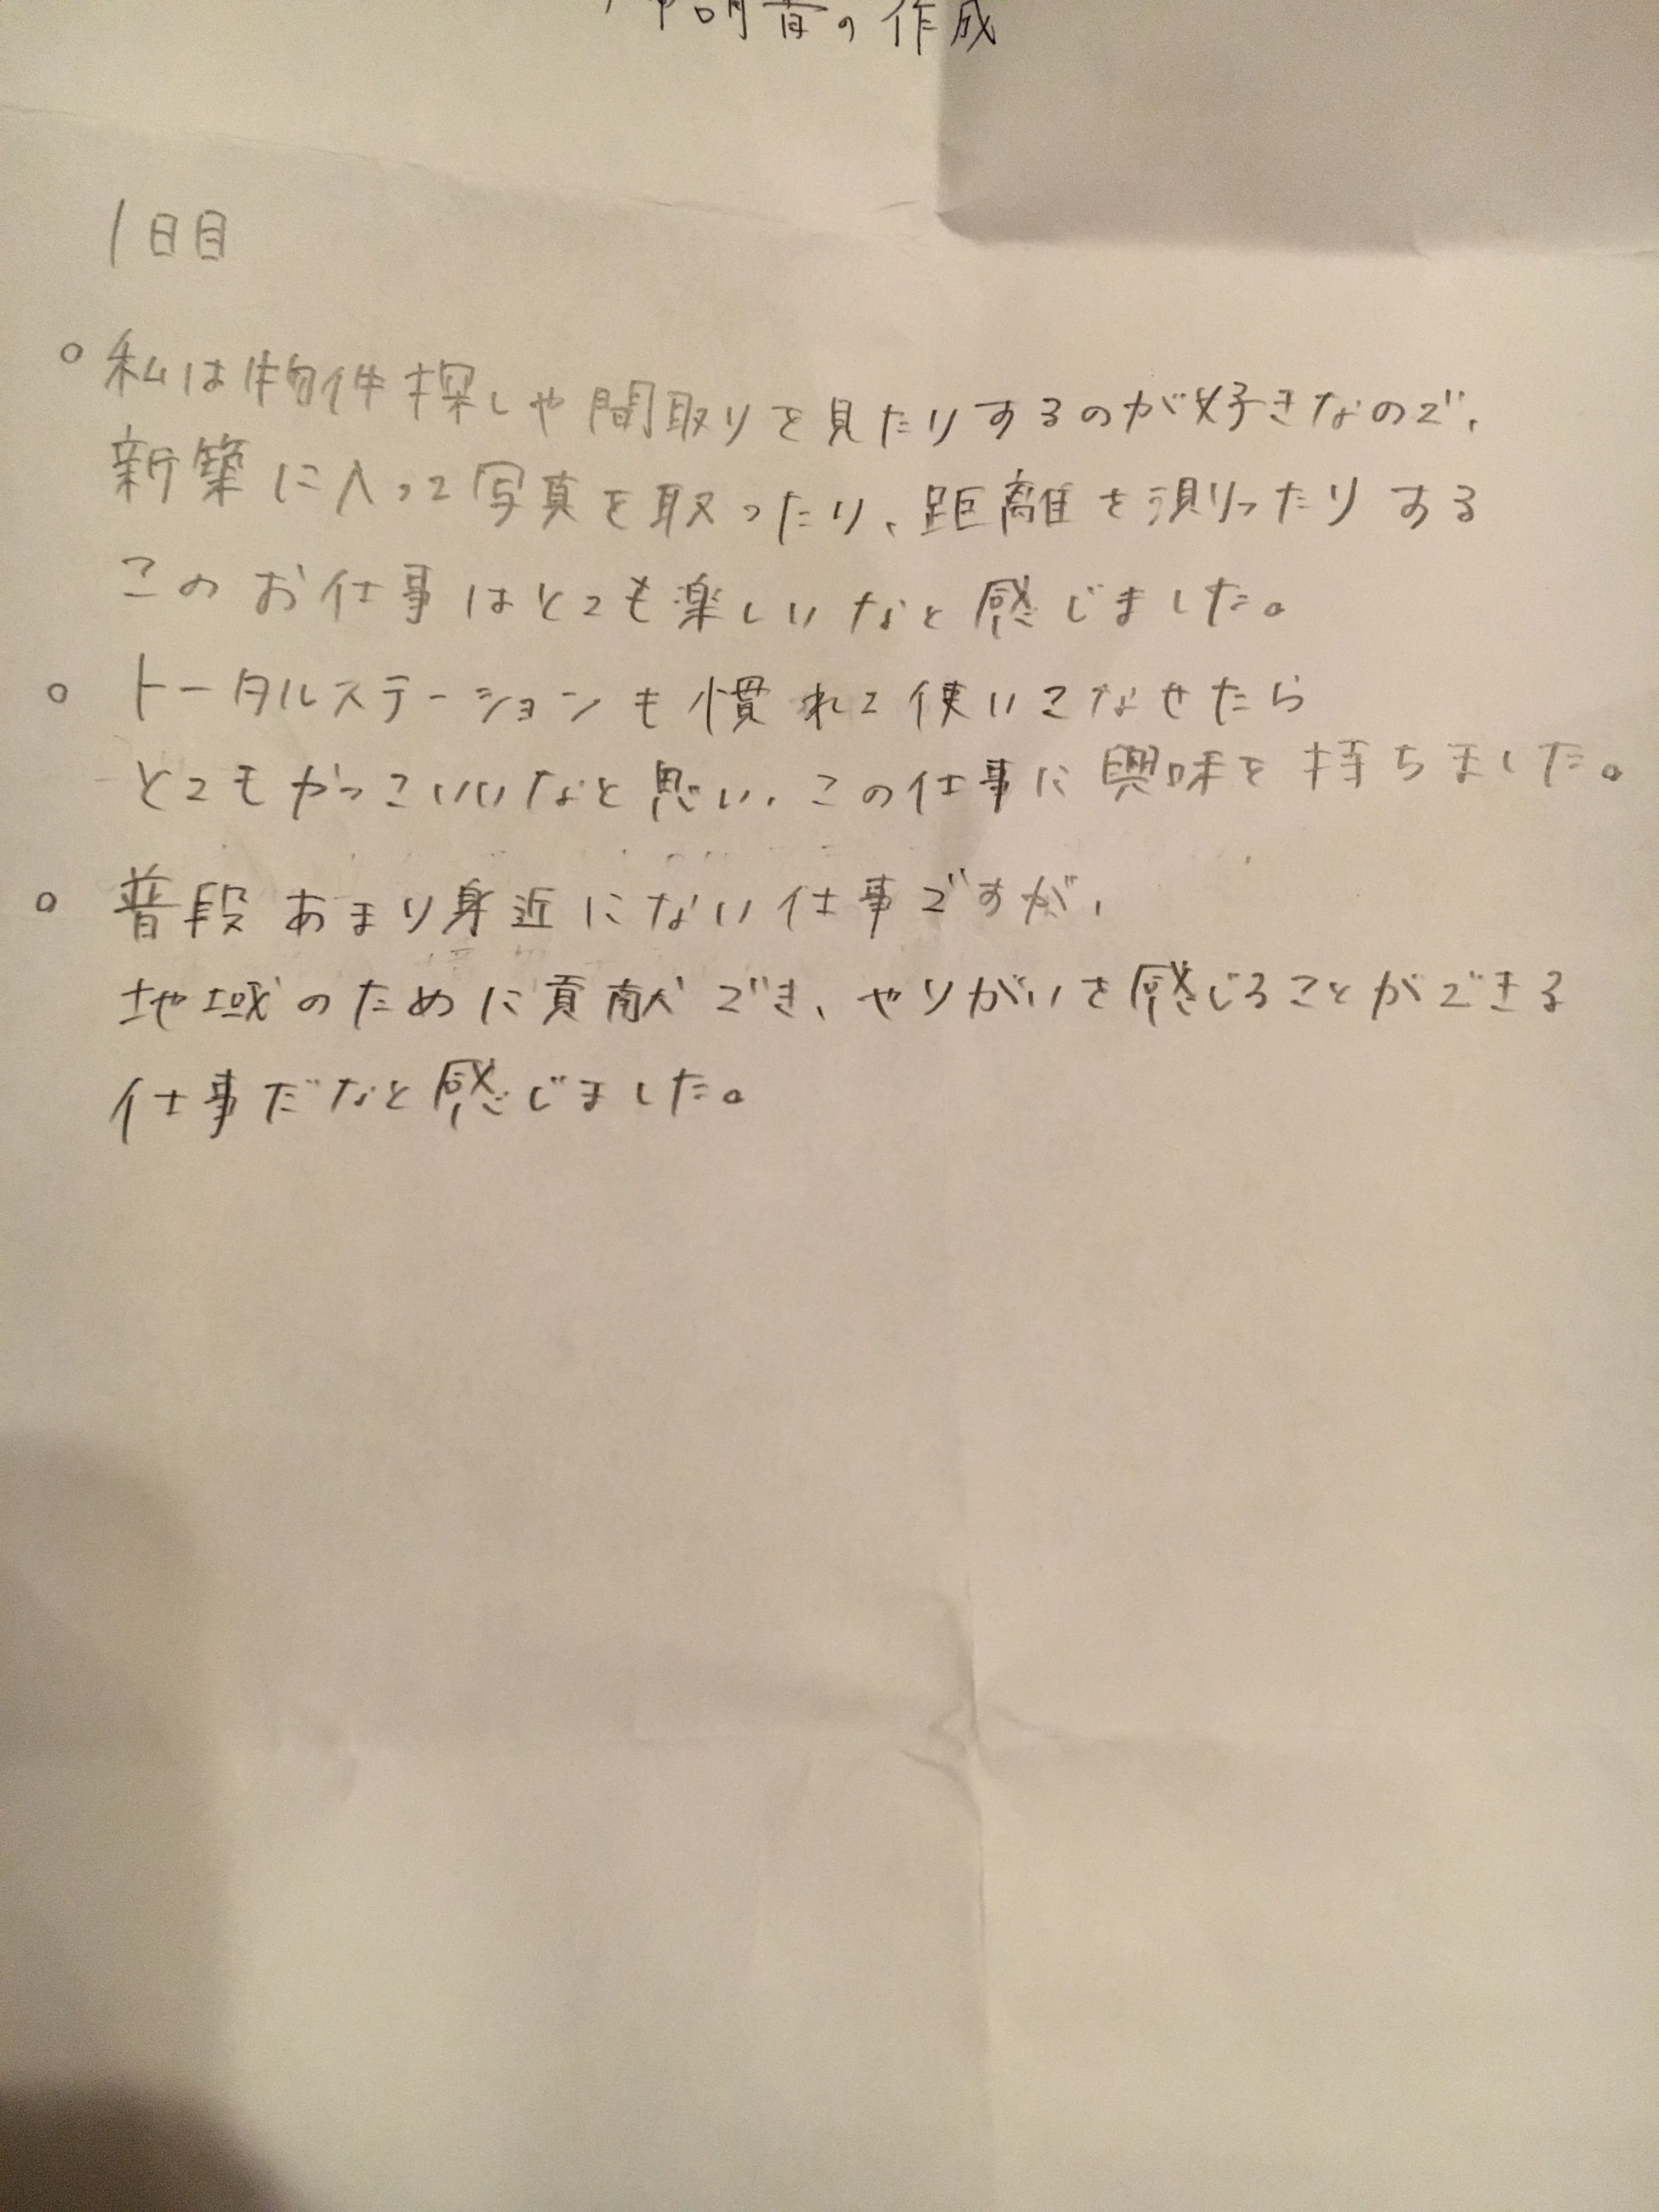 申請書の作成
1日目
○ 私は物件探しや間取りを見たりするのが好きなので、
新築に入って写真を取ったり、距離を測ったりする
このお仕事はとても楽しいなと感じました。
○ トータルステーションも慣れて使いこなせたら
とてもかっこいいなと思い、この仕事に興味を持ちました。
○ 普段あまり身近にない仕事ですが、
地域のために貢献でき、やりがいを感じることができる
仕事だなと感じました。